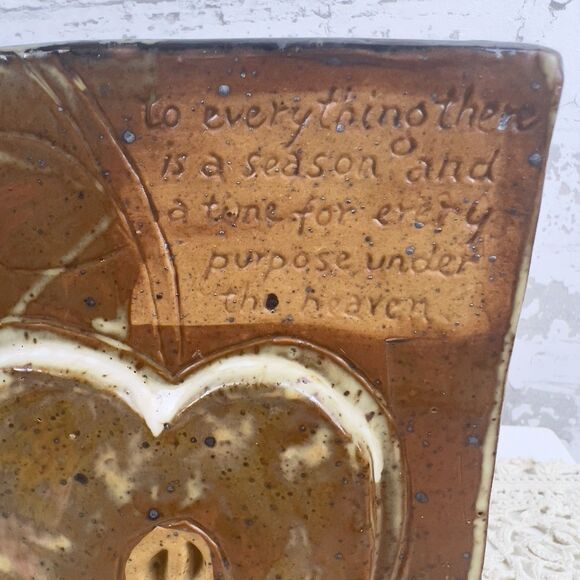 to everything there
is a season and
a time for every
purpose under
the heaven